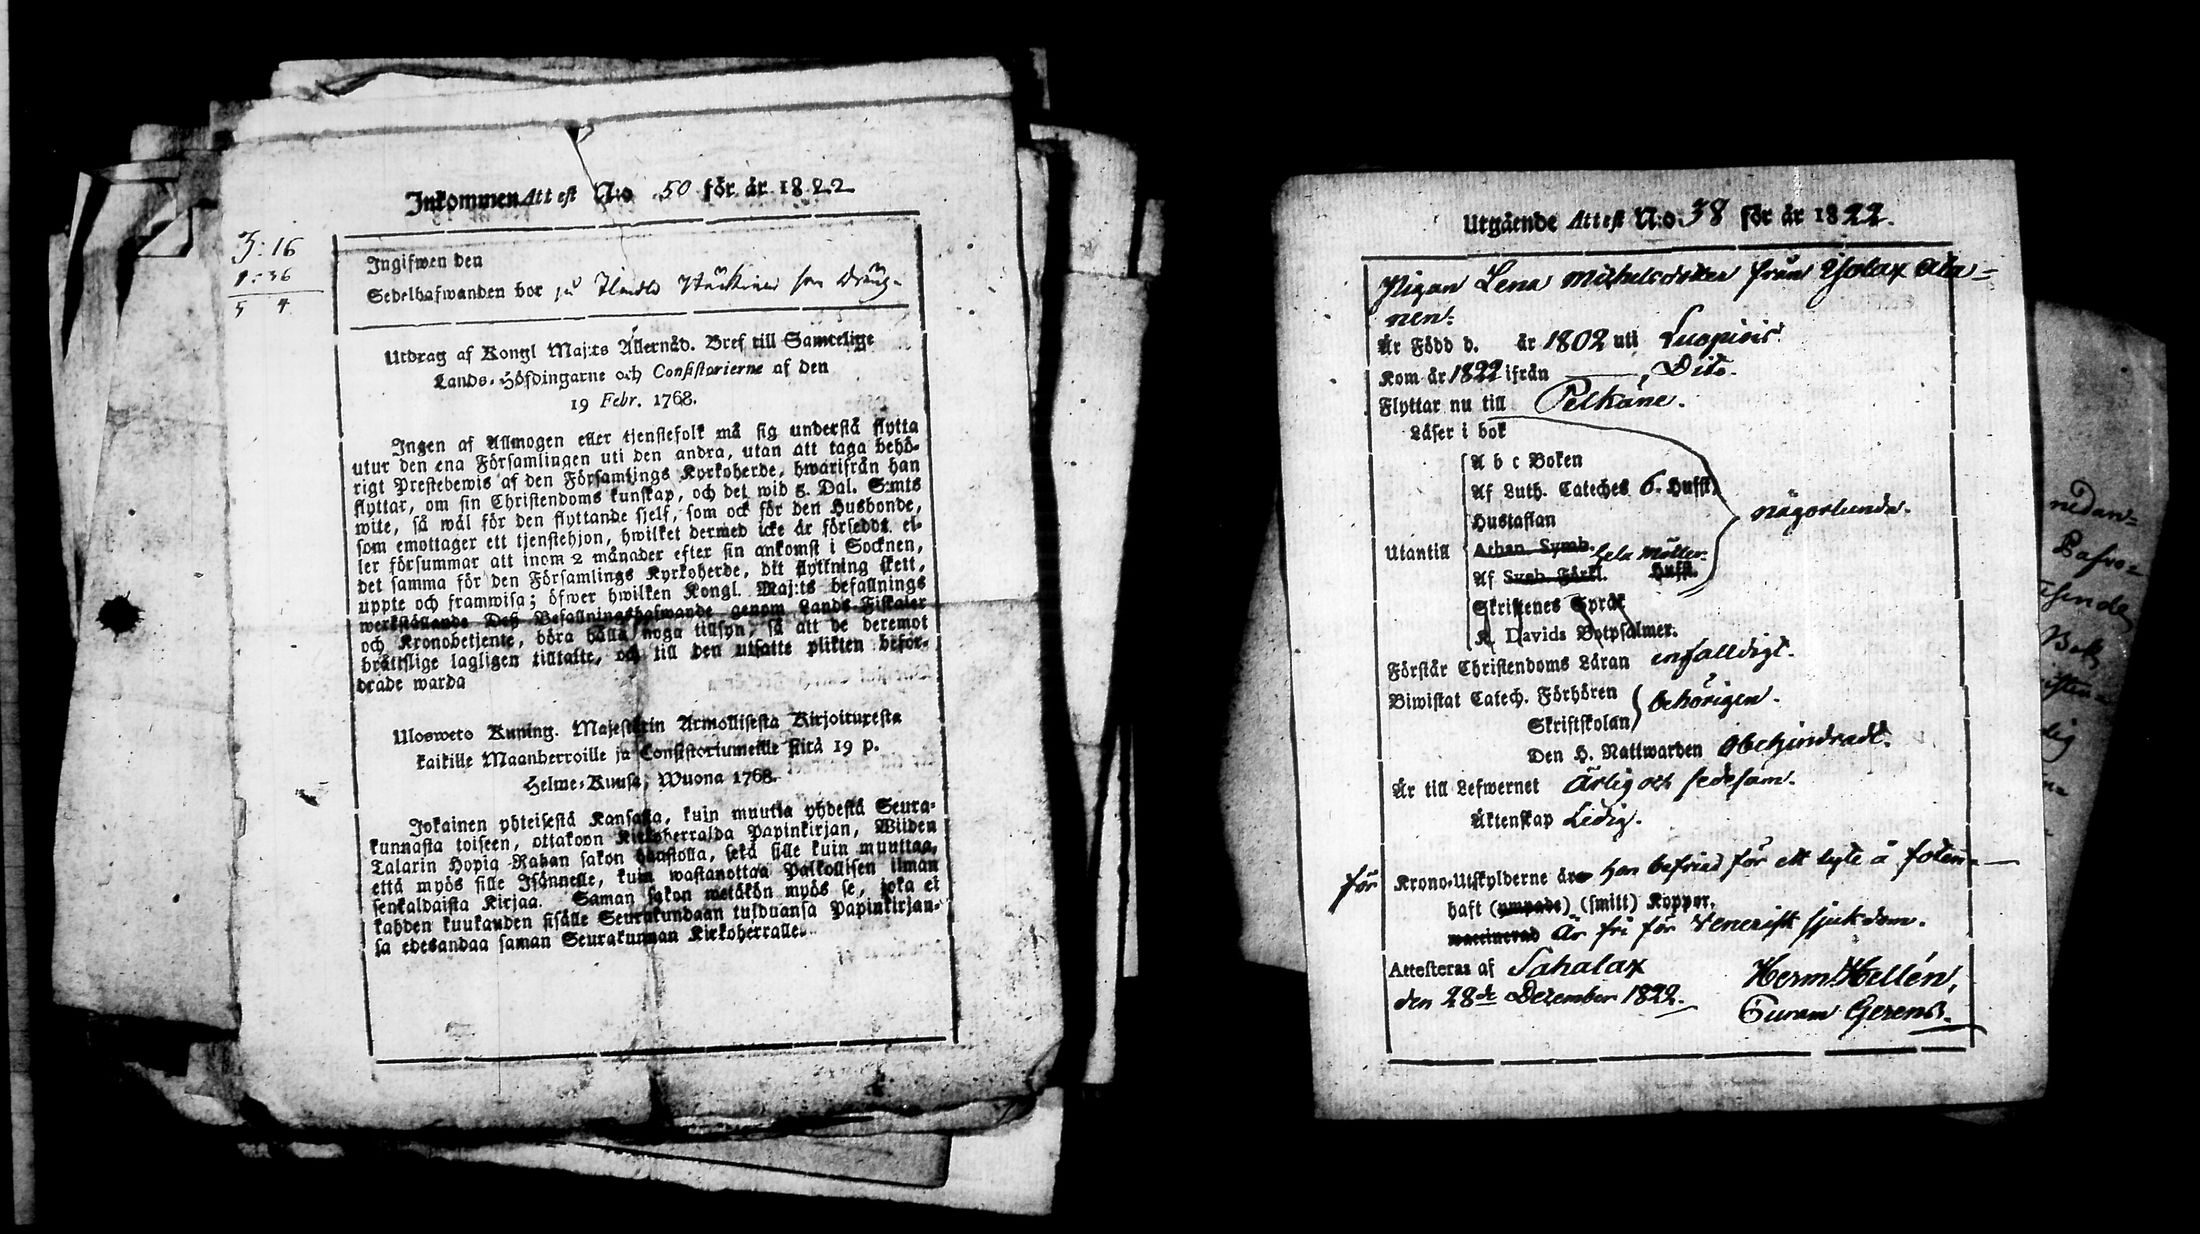 Inkommen Attest N:o 50 för år 1822
3:16
1:36
5 4
Ingifwen den
Sedelhafwanden bor på
Utdrag af Kongl Maj:ts Allernåd. Bref till Samtelige
Lands-Höfdingarne och Consistorierne af den
19 Febr. 1768.
Ingen af Allmogen eller tjenstefolk må sig understå flytta
utur den ena Församlingen uti den andra, utan att taga behö-
rigt Prestebewis af den Församlings Kyrkoherde, hwarifrån han
flyttar, om sin Christendoms kunskap, och det wid 5. Dal. S:mts
wite, så wäl för den flyttande sjelf, som ock för den Husbonde,
som emottager ett tjenstehjon, hwilket dermed icke är förseddt el-
ler försummar att inom 2 månader efter sin ankomst i Socknen,
det samma för den Församlings Kyrkoherde, dit flyttning skett,
uppte och framwisa; öfwer hwilken Kongl. Maj:ts befallnings
werkställande Deß Befallningshafwande genom Lands-Fiskaler
och Kronobetjente, böra hålla noga tillsyn, så att de deremot
bråttslige lagligen tilltalte, och till den utsatte plikten beför-
drade warda
Ulosweto Kuning. Majestetin Armollisesta Kirjoituxesta
kaikille Maanherroille ja Consistoriumeille siitä 19 p.
Helme-Kuusa, Wuona 1768.
Jokainen yhteisestä Kansasta, kuin muutta yhdestä Seura-
kunnasta toiseen, ottakoon Kirkoherralda Papinkirjan, Wiiden
Talarin Hopia Rahan sakon haastolla, sekä sille kuin muuttaa,
että myös sille Isännelle, kuin wastanottaa Palkollisen ilman
senkaldaista Kirjaa. Saman sakon wetäkön myös se, joka ei
kahden kuukauden sisälle Seurakundaan tulduansa Papinkirjan-
sa edesandaa saman Seurakunnan Kirkoherralle.
Utgående Attest N:o 38 för år 1822.
Pigan Lena Michelsdotter från Ala-
nen.
Är Född d. år 1802 uti Luopiois.
Kom år 1822 ifrån Dito.
Flyttar nu till Pelkäne.
Läser i bok
A b c Boken
Af Luth. Cateches 6. Hufst.
Hustaflan
Utantill Athan. Symb. hela Möller.
Af Symb. Förkl. Hufst.
någorlunda.
Skriftenes Språk
K. Davids Botpsalmer.
Förstår Christendoms Läran enfalldigt.
Biwistat Catech. Förhören
Skriftskolan behörigen.
Den H. Nattwarden Obehindradt.
Är till Lefwernet Ärlig och sedesam.
Äktenskap Ledig.
för Krono-Utskylderne är hon befriad för ett lyte å foten.
haft (ympade) (smitt) Koppor.
waccinerad Är fri för Venerisk sjukdom.
Attesteras af Sahalax Herm. Hellén,
den 28de December 1822. Curam Gerens.
nedan=
Bafwo=